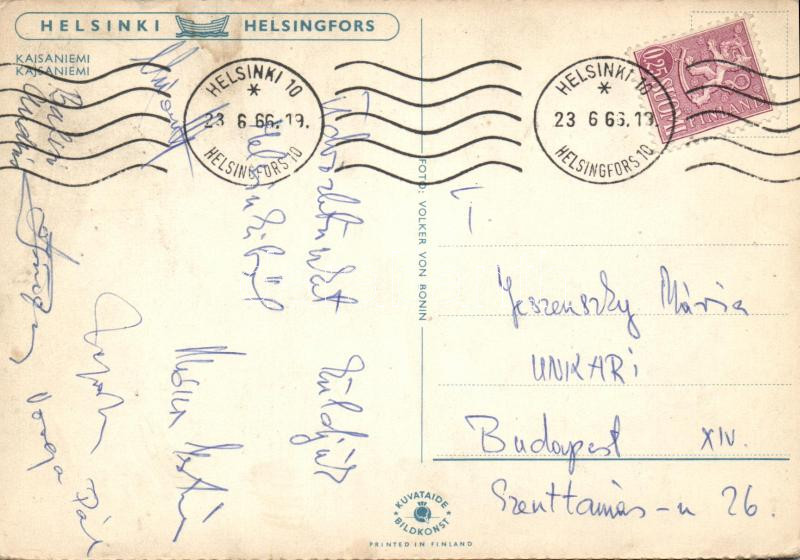 HELSINKI HELSINGFORS
KAISANIEMI
KAJSANIEMI
HELSINKI 10
23 6 66.19.
HELSINGFORS 10
HELSINKI 10
23 6 66.19
HELSINGFORS 10
0,25 SUOMI
FINLAND
Üdvözletünket küldjük
Helsinkiből
Pál
FOTO: VOLKER VON BONIN
Jeszenszky Mária
UNKARI
Budapest XIV.
Szenttamás-u 26.
KUVATAIDE
BILDKONST
PRINTED IN FINLAND